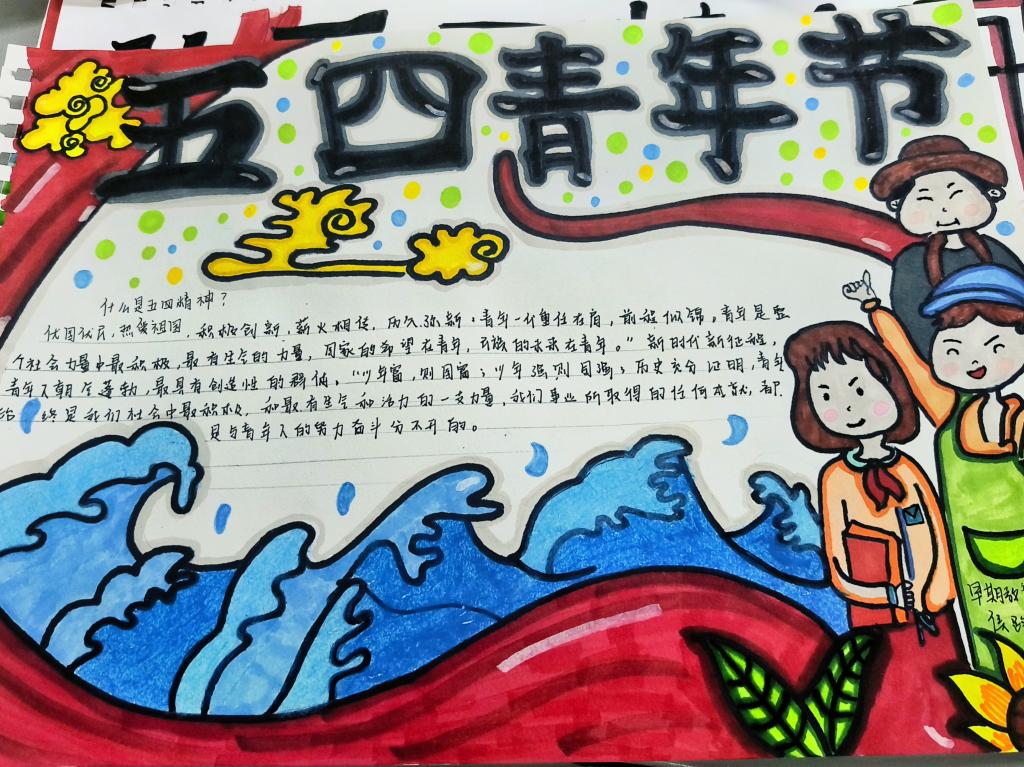 五四青年节
什么是五四精神？
忧国忧民，热爱祖国，积极创新，薪火相传，历久弥新。青年一代重任在肩，前程似锦。青年是整
个社会力量中最积极，最有生气的力量，国家的希望在青年，民族的未来在青年。”新时代新征程，
青年人朝气蓬勃，最具有创造性的群体。“少年富，则国富；少年强，则国强；历史充分证明，青年
始终是我们社会中最积极，和最有生气和活力的一支力量，我们事业所取得的任何成就，都
是与青年人的努力奋斗分不开的。
早期教